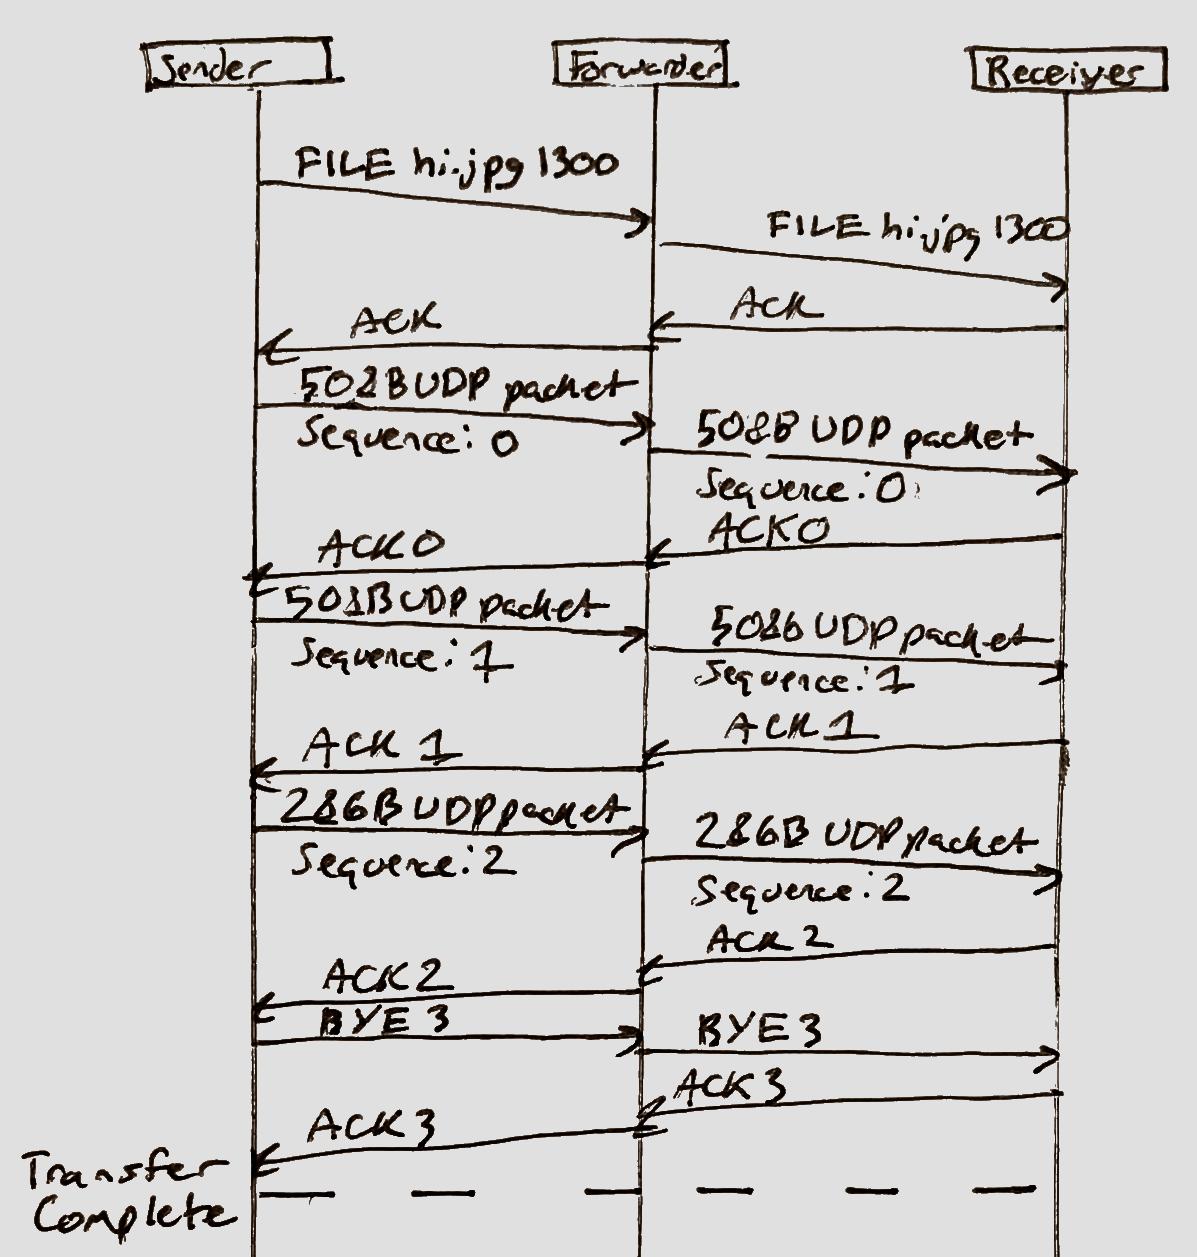 Sender
Forwarder
Receiver
FILE hi.jpg 1300
FILE hi.jpg 1300
ACK
ACK
508B UDP packet
Sequence: 0
508B UDP packet
Sequence: 0
ACK 0
ACK 0
508B UDP packet
Sequence: 1
508b UDP packet
Sequence: 1
ACK 1
ACK 1
286B UDP packet
Sequence: 2
286B UDP packet
Sequence: 2
ACK 2
ACK 2
BYE 3
BYE 3
ACK 3
ACK 3
Transfer
Complete